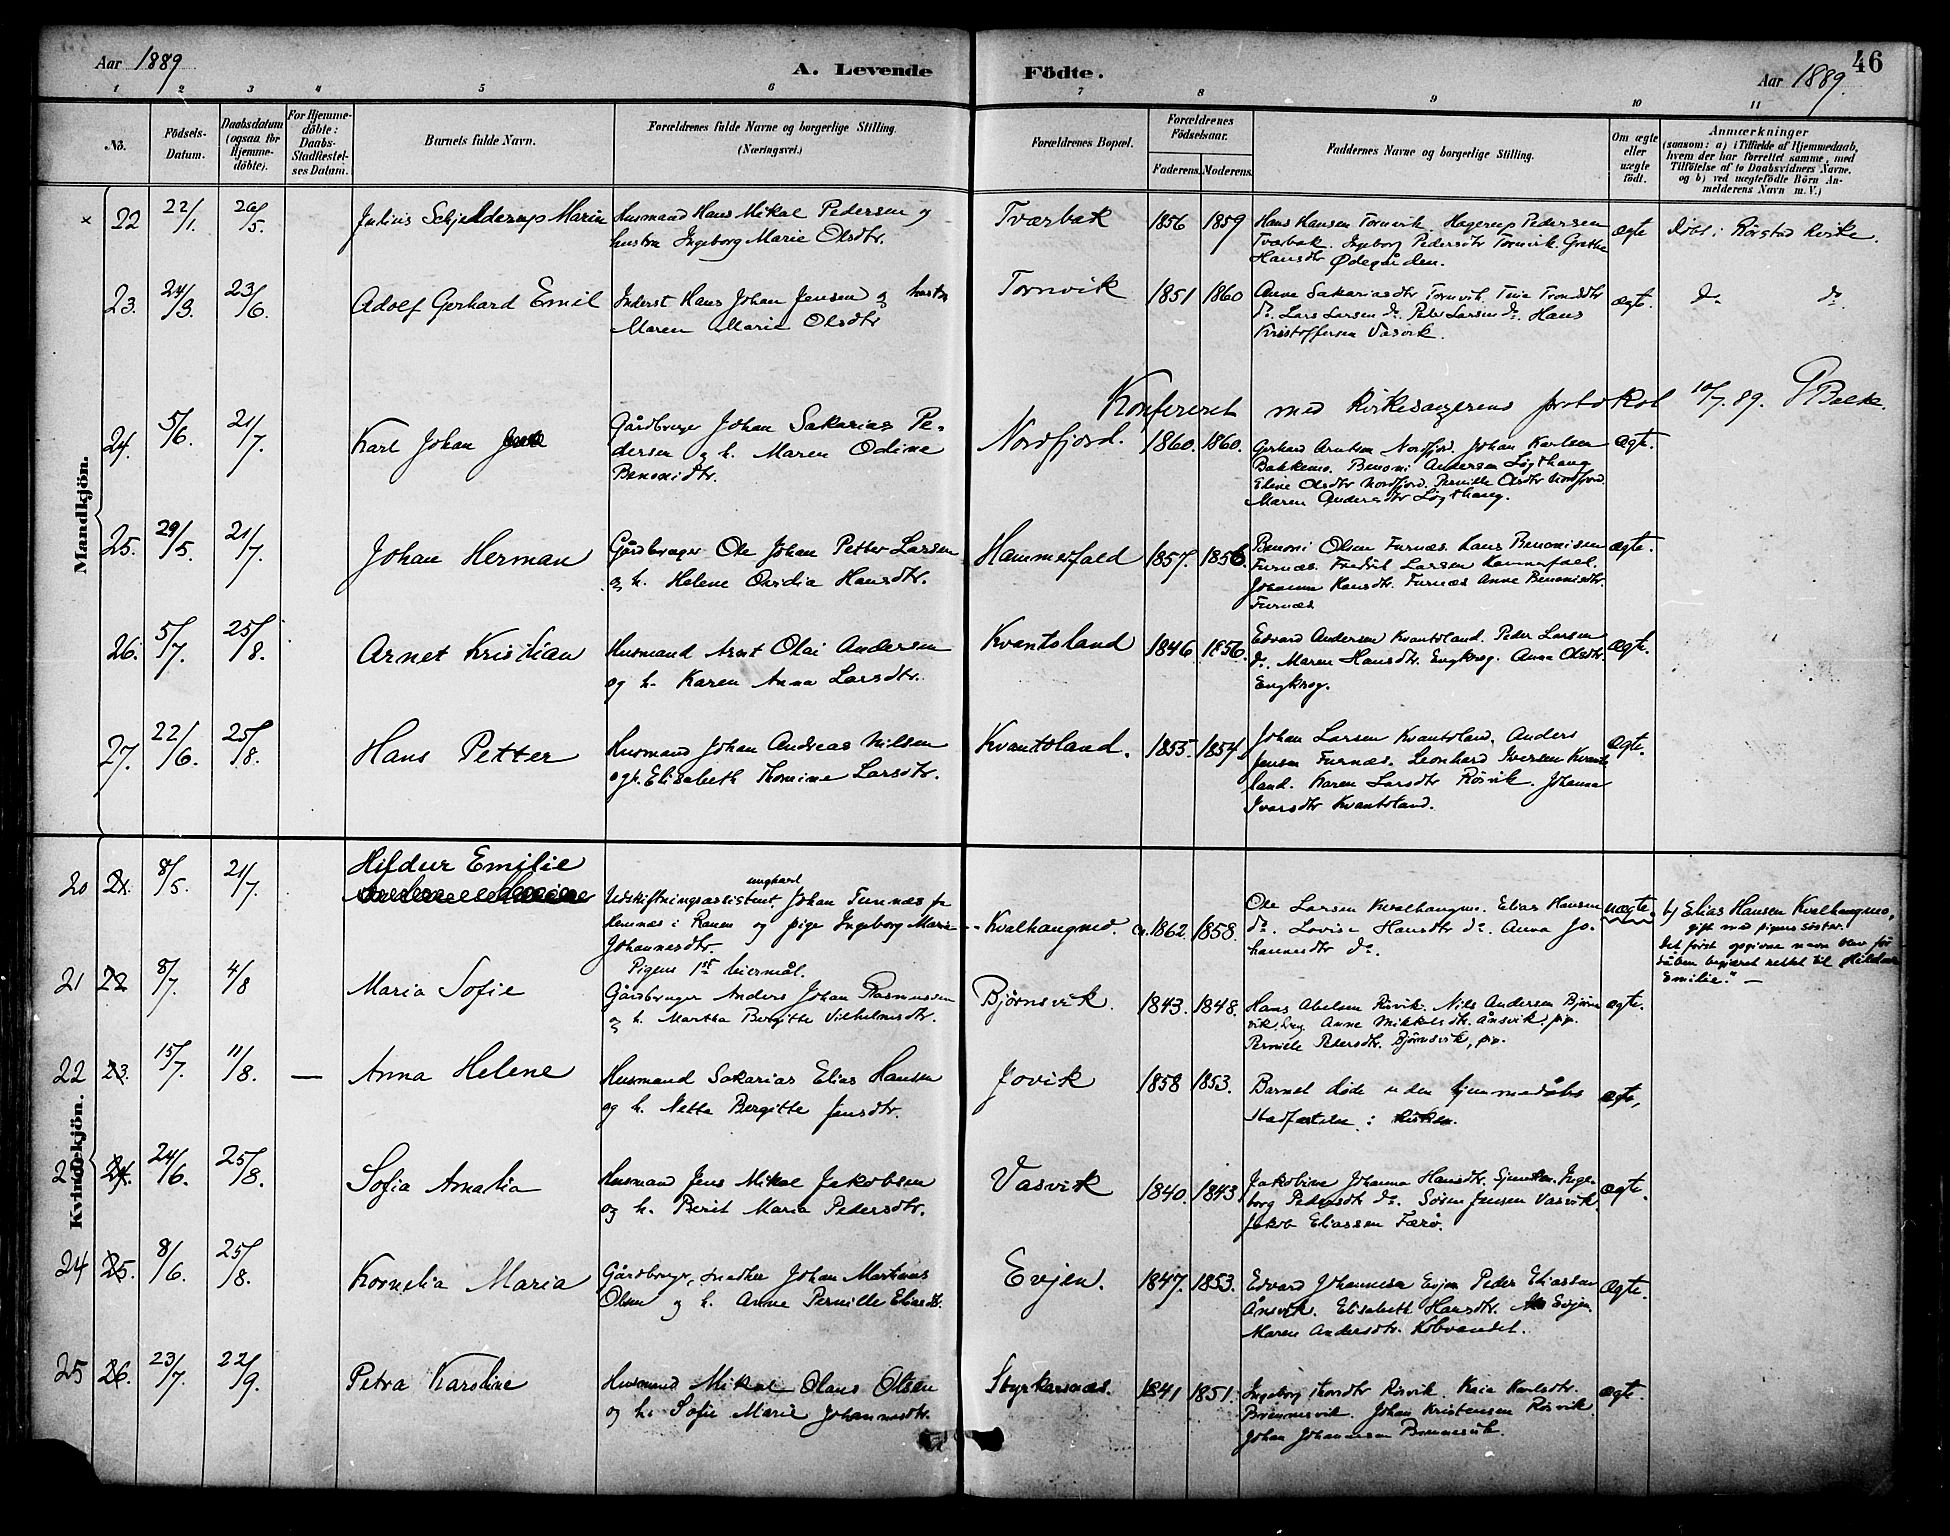 46
Aar 1889 A. Levende Födte. Aar 1889.
1 2 3 4 5 6 7 8 9 10 11
No.
Födsels-Datum.
Daabsdatum (ogsaa for Hjemme-döbte).
For Hjemme-döbte: Daabs-Stadfæstel-ses Datum.
Barnets fulde Navn.
Forældrenes fulde Navne og borgerlige Stilling. (Næringsvei.)
Forældrenes Bopæl.
Forældrenes Födselsaar.
Faderens. Moderens.
Faddernes Navne og borgerlige Stilling.
Om ægte eller uægte født.
Anmærkninger
(saasom: a) i Tilfælde af Hjemmedaab,
hvem der har forrettet samme, med
Tilföielse af to Daabsvidners Navne,
og b) ved uægtefödte Börn An-
melderens Navn m. V.)
Mandkjön.
× 22 22/1. 26/5. Julius Schjelderup Marin
Husmand Hans Mikal Pedersen og
hustru Ingeborg Marie Olsdtr.
Tværbak 1856 1859
Hans Hansen Tornvik. Hagerup Pedersen
Tværbak. Ingeborg Pedersdtr Tornvik. Grethe
Hansdtr Ødegården.
ægte
døbt i Rørstad Kirke.
23. 24/3. 23/6. Adolf Gerhard Emil
Inderst Hans Johan Jensen og hustru
Maren Marie Olsdtr
Tornvik 1851 1860
Anne Sakariasdtr Tornvik. Trondsdtr
do. Lars Larsen do. Peder Larsen do. Hans
Kristoffersen Vasvik.
ægte.
do do
Konfereret med Kirkesangerens protokol 10/7. 89. Balk.
24. 5/6. 21/7. Karl Johan
Gårdbruger Johan Sakarias Pe-
dersen og h. Maren Odine
Benonidtr.
Nordfjord. 1860. 1860.
Gerhard Arntsen Nordfjord. Johan Karlsen
Bakkemo. Benoni Andersen Løgthaug
Eline Olsdtr Nordfjord. Pernille Olsdtr Nordfjord.
Maren Andersdtr Løgthaug.
Ægte.
25. 29/5. 21/7. Johan Herman
Gårdbruger Ole Johan Petter Larsen
og h. Helene Ovidia Hansdtr.
Hammerfald 1857. 1856.
Benoni Olsen Furnæs. Hans Benonisen
Furnæs. Fredrik Larsen Hammerfal.
Johanna Hansdtr. Furnæs Anne Benonisdtr.
Furnæs
ægte.
26. 5/7. 25/8. Arnet Kristian
Husmand Arnt Olai Andersen
og h. Karen Anna Larsdtr.
Kvantoland 1846 1856.
Edvard Andersen Kvantoland. Peder Larsen
do. Maren Hansdtr. Engkrog. Anna Olsdtr.
Engkrog.
Ægte.
27. 22/6. 25/8. Hans Petter
Husmand Johan Andreas Nilsen
og h. Elisabeth Tomine Larsdtr.
Kvantoland. 1855. 1854
Johan Larsen Kvantoland. Anders
Jensen Furnæs. Leonhard Iversen Kvanto
land. Karen Larsdtr Rösvik. Johanna
Ivarsdtr Kvantoland.
Ægte.
Kvindekjön.
20 21. 8/5. 21/7. Hildur Emilie
Udskiftningsassistent, ungkarl Johan Furnæs fra
Hemnæs i Ranen og pige Ingeborg Marie
Johannesdtr.
Pigens 1ste leiermål.
Kvalhangmo. ca. 1862. 1858.
Ole Larsen Kvalhangmo. Elias Hansen
do. Lovise Hansdtr do. Anna Jo-
hannesdtr do.
uægte.
b) Elias Hansen Kvalhangmo,
gift med pigens söster.
Det först opgivne navn blev för
dåben begjæret rettet til Hildur
Emilie." —
21 22 8/7. 4/8 Maria Sofie
Gårdbruger Anders Johan Rasmussen
og h. Martha Bergitte Vilhelmsdtr.
Björnsvik 1843. 1848.
Hans Abelsen Rösvik. Nils Andersen Björns
vik, Anne Mikkelsdtr. Ånsvik, pige.
Pernille Pedersdtr. Björnsvik, pige.
ægte.
22 23. 15/7. 11/8. — Anna Helene
Husmand Sakarias Elias Hansen
og h. Netta Bergitte Jensdtr.
Jovik 1858 1853.
Barnet döde uden hjemmedåbs
stadfæstelse i kirken.
ægte,
23 24. 24/6. 25/8. Sofia Amalia
Husmand Jens Mikal Jakobsen
og h. Berit Maria Pedersdtr.
Vasvik 1840. 1843
Jakobine Johanna Hansdtr. Inge-
borg Pedersdtr do. Sören Jensen Vasvik.
Jakob Eliassen Færö.
Ægte.
24 25. 8/6. 25/8. Kornelia Maria
Gårdbruger, snedker Johan Martinus
Olsen og h. Anne Pernille Eliasdtr.
Evjen. 1847. 1853.
Edvard Johannesen Evjen Peder Eliassen
Ånsvik. Elisabeth Hansdtr. Evjen.
Maren Andersdtr. Kobvandet.
Ægte.
25 26. 23/7. 22/9. Petra Karoline
Husmand Mikal Olaus Olsen
og h. Sofie Marie Johannesdtr.
Styrkarsnæs. 1841 1851.
Ingeborg Thordtr Rösvik. Kaia Karlsdtr.
Brennesvik. Johan Kristensen Rösvik.
Johan Johannesen Brennesvik.
ægte.